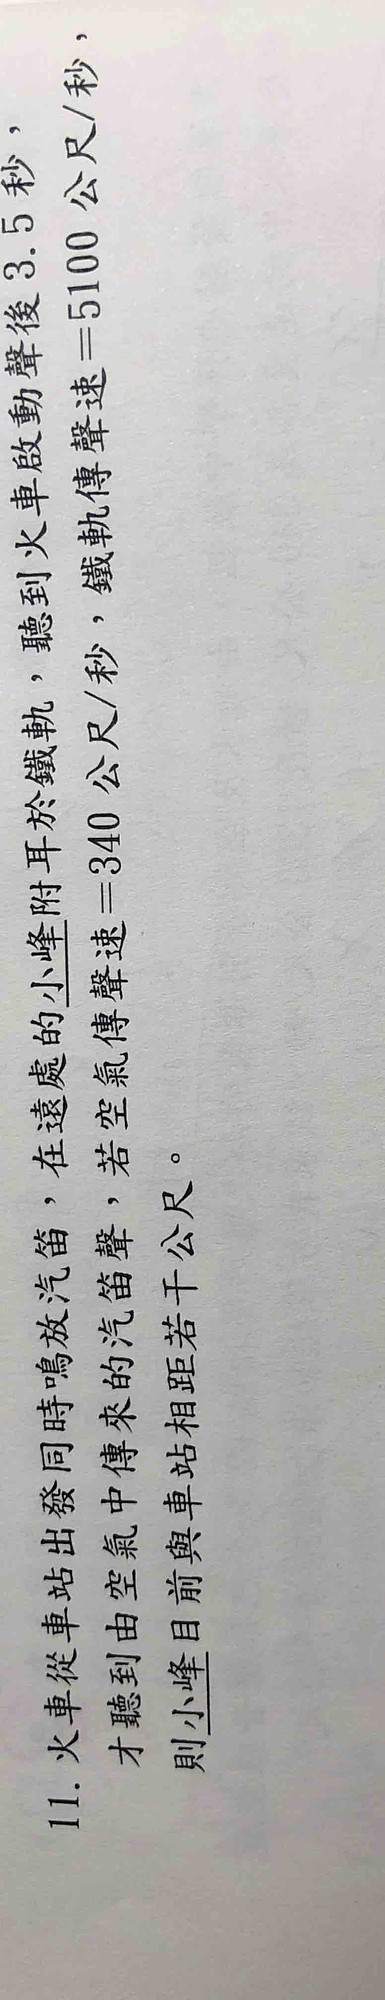 11. 火車從車站出發同時鳴放汽笛，在遠處的小峰附耳於鐵軌，聽到火車啟動聲後 3.5 秒，
才聽到由空氣中傳來的汽笛聲，若空氣傳聲速=340 公尺/秒，鐵軌傳聲速=5100 公尺/秒，
則小峰目前與車站相距若干公尺。